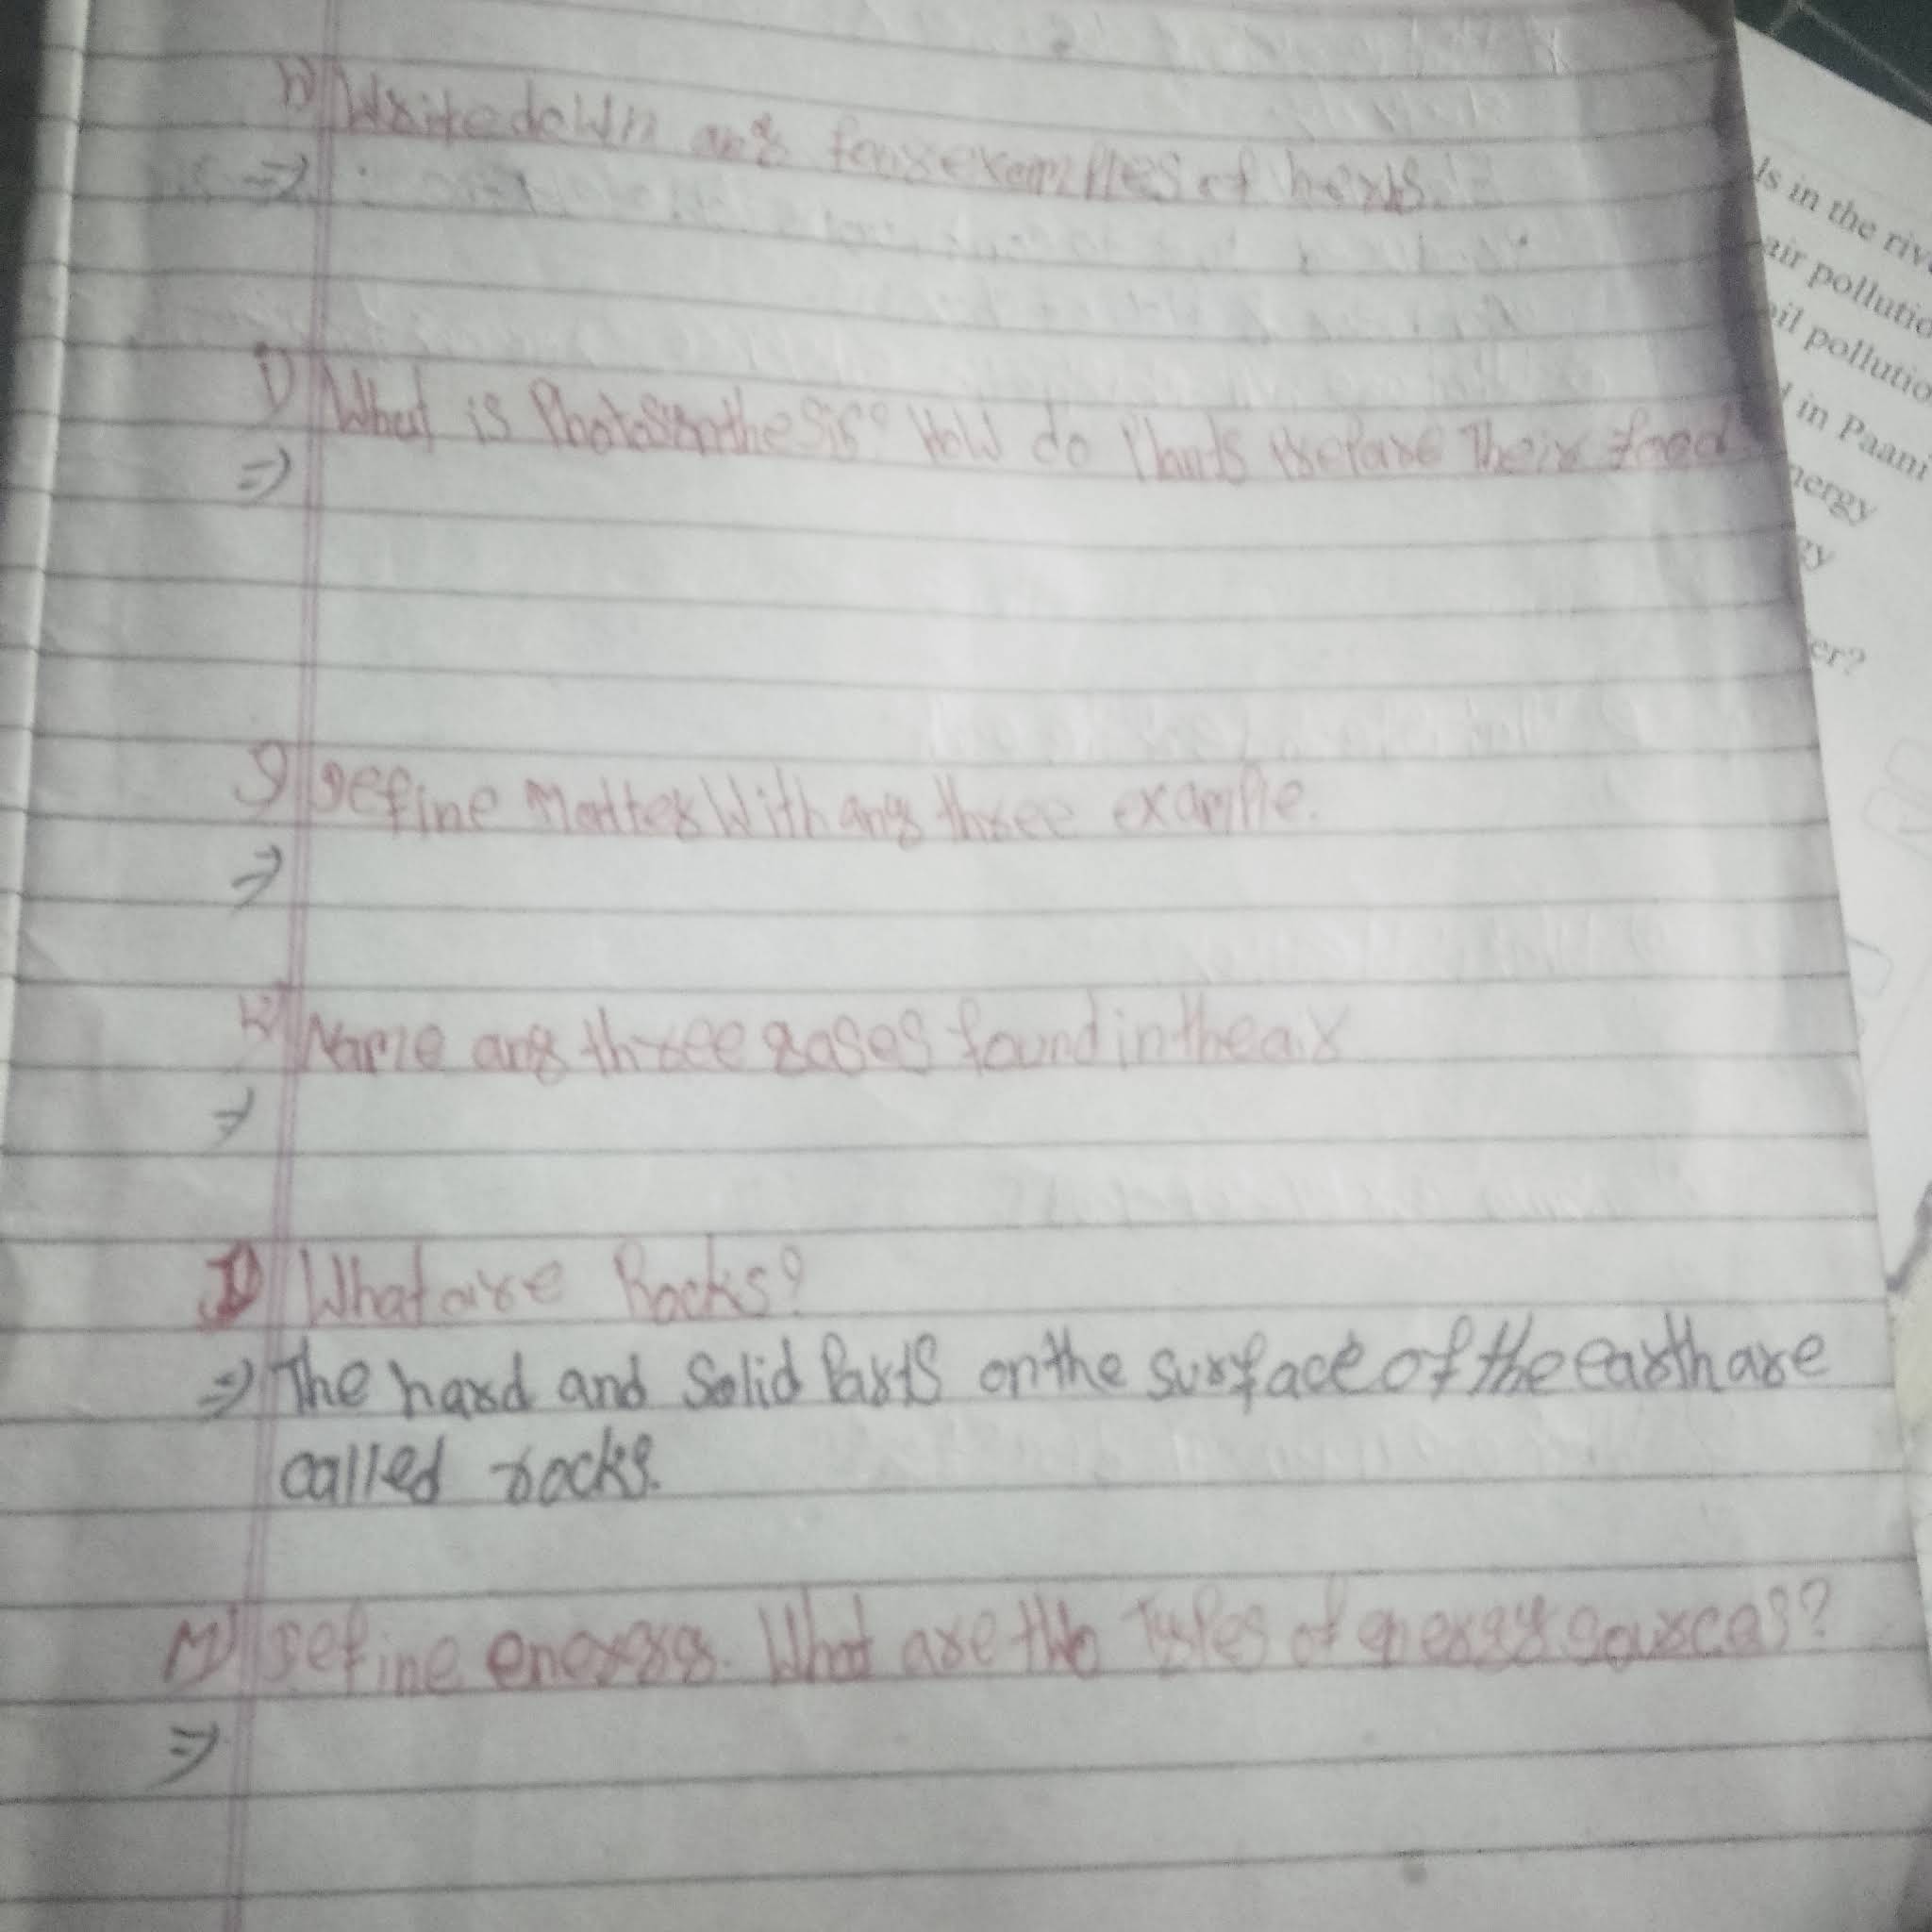 h) Write down any four examples of herbs.
=>
i) What is Photosynthesis? How do Plants prepare Their food
=>
j) Define Matter With any three example.
=>
k) Name any three gases found in the air
=>
l) What are Rocks?
=> The hard and Solid Parts on the surface of the earth are
called rocks.
M) Define energy. What are the Types of energy sources?
=>
ls in the riv
air pollutio
il pollutio
in Paani
nergy
gy
er?